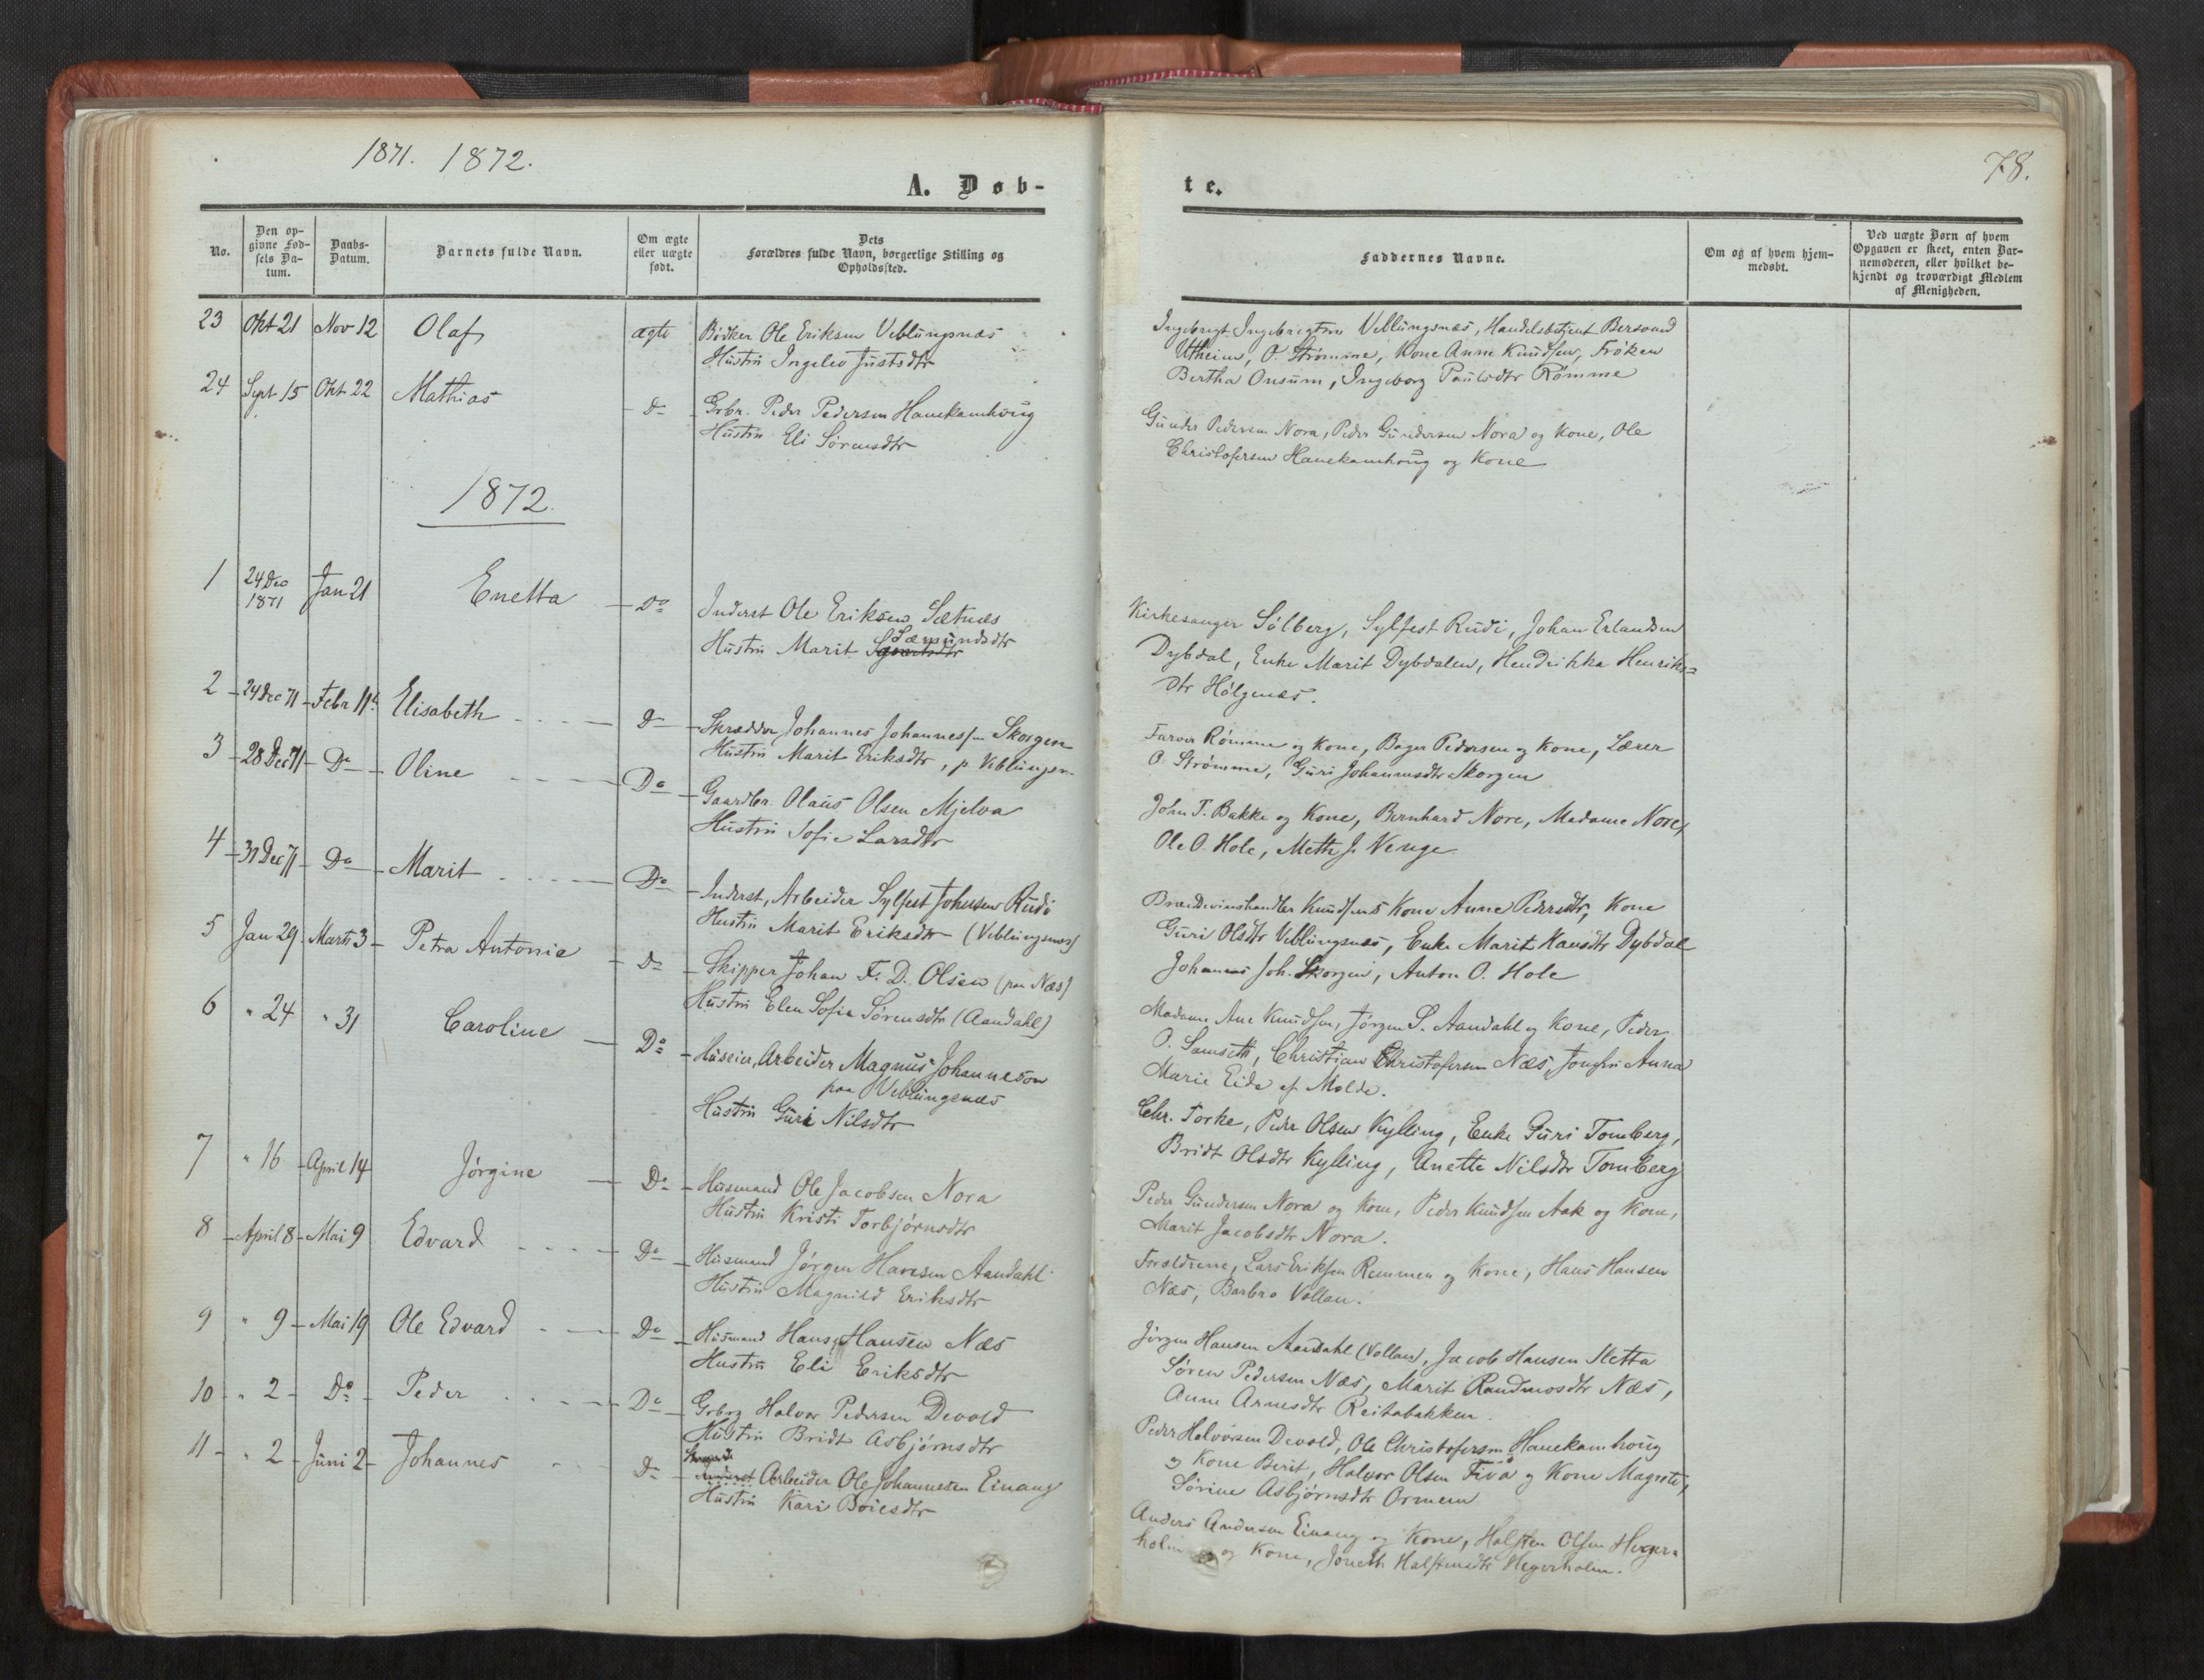 1871. 1872.
A. Døb-
No.
Den op-
givne Fød-
sels Da-
tum.
Daabs-
Datum.
Barnets fulde Navn.
Om ægte
eller uægte
født.
Dets
Forældres fulde Navn, borgerlige Stilling og
Opholdssted.
23 Okt 21 Nov 12 Olaf ægte Bödker Ole Eriksen Veblungsnæs
Hustru Ingelev Justsdtr
24 Sept 15 Okt 22 Mathias Do Grbr. Peder Pedersen Hanekamhoug
Hustru Eli Sørensdtr
1872.
1 24 Dec 1871 Jan 21 Enetta Do Inderst Ole Eriksen Sætnæs
Hustru Marit Sæmundsdtr
2 24 Dec 71 Febr 11 Elisabeth Do Skrædder Johannes Johannessen Skorgen
Hustru Marit Eriksdtr, p. Veblungsn.
3 28 Dec 71 Do Oline Do Gaardbr. Olaus Olsen Mjelva
Hustru Sofie Larsdtr
4 31 Dec 71 Do Marit Do Inderst, Arbeider Sylfest Johnsen Rudi
Hustru Marit Eriksdtr (Veblungsnæs)
5 Jan 29 Marts 3 Petra Antonie Do Skipper Johan F. D. Olsen (paa Næs)
Hustru Elen Sofie Sørensdtr (Aandahl)
6 " 24 " 31 Caroline Do Huseier, Arbeider Magnus Johanneson
paa Veblungsnæs
Hustru Guri Nilsdtr
7 " 16 April 14 Jørgine Do Husmand Ole Jacobsen Nora
Hustru Kristi Torbjørnsdtr
8 April 8 Mai 9 Edvard Do Husmand Jørgen Hansen Aandahl
Hustru Magnild Eriksdtr
9 " 9 Mai 19 Ole Edvard Do Husmand Hans Hansen Næs
Hustru Eli Eriksdtr
10 " 2 Do Peder Do Grbrg Halvor Pedersen Devold
Hustru Bridt Asbjørnsdtr
11 " 2 Juni 2 Johannes Do Inderst Arbeider Ole Johannesen Einang
Hustru Kari Boiesdtr
78.
te.
Faddernes Navne.
Om og af hvem hjem-
medøbt.
Ved uægte Børn af hvem
Opgaven er skeet, enten Bar-
nemoderen, eller hvilket be-
kjendt og troværdigt Medlem
af Menigheden.
Ingebrigt Ingebrigtsen Veblungsnæs, Handelsbetjent Bersvend
Utheim, O. Strömme, Kone Anne Knudsen, Frøken
Bertha Onsum, Ingeborg Paulsdtr Rømme
Gunder Pedersen Nora, Peder Gundersen Nora og Kone, Ole
Christofersen Hanekamhoug og Kone
Kirkesanger Sólberg, Sylfest Rudi, Johan Erlandsen
Dybdal, Enke Marit Dybdalen, Hendrikka Henriks=
dtr Hólgenæs.
Farver Rómme og Kone, Bager Pedersen og Kone, Lærer
O. Strömme, Guri Johannesdtr Skorgen
John T. Bakke og Kone, Bernhard Nore, Madame Nore,
Ole O. Hole, Meth J. Venge
Brændevinshandler Knudsens Kone Anne Pedersdtr, Kone
Guri Olsdtr Veblungsnæs, Enke Marit Hansdtr Dybdal
Johannes Joh. Skorgen, Anton O. Hole
Madame Ane Knudsen, Jørgen S. Aandahl og Kone, Peder
O. Samseth, Christian Christofersen Næs, Jomfru Anna
Marie Eide af Molde.
Chr. Torke, Peder Olsen Kylling, Enke Guri Tomberg,
Bridt Olsdtr Kylling, Anette Nilsdtr Tomberg
Peder Gundersen Nora og Kone, Peder Knudsen Aak og Kone,
Marit Jacobsdtr Nora.
Forældrene, Lars Eriksen Remmen og Kone, Hans Hansen
Næs, Barbro Vollan.
Jørgen Hansen Aandahl (Vollan), Jacob Hansen Sletta
Søren Pedersen Næs, Marit Randmosdtr Næs,
Anne Arnesdtr Reitabakken.
Peder Halvorsen Devold, Ole Christofersen Hanekamhoug
og Kone Berit, Halvor Olsen Fiva og Kone Magnete,
Sørine Asbjørnsdtr Ormem
Anders Andersen Einang og Kone, Halsten Olsen Heger=
holm og Kone, Joneth Halstensdtr Hegerholm.